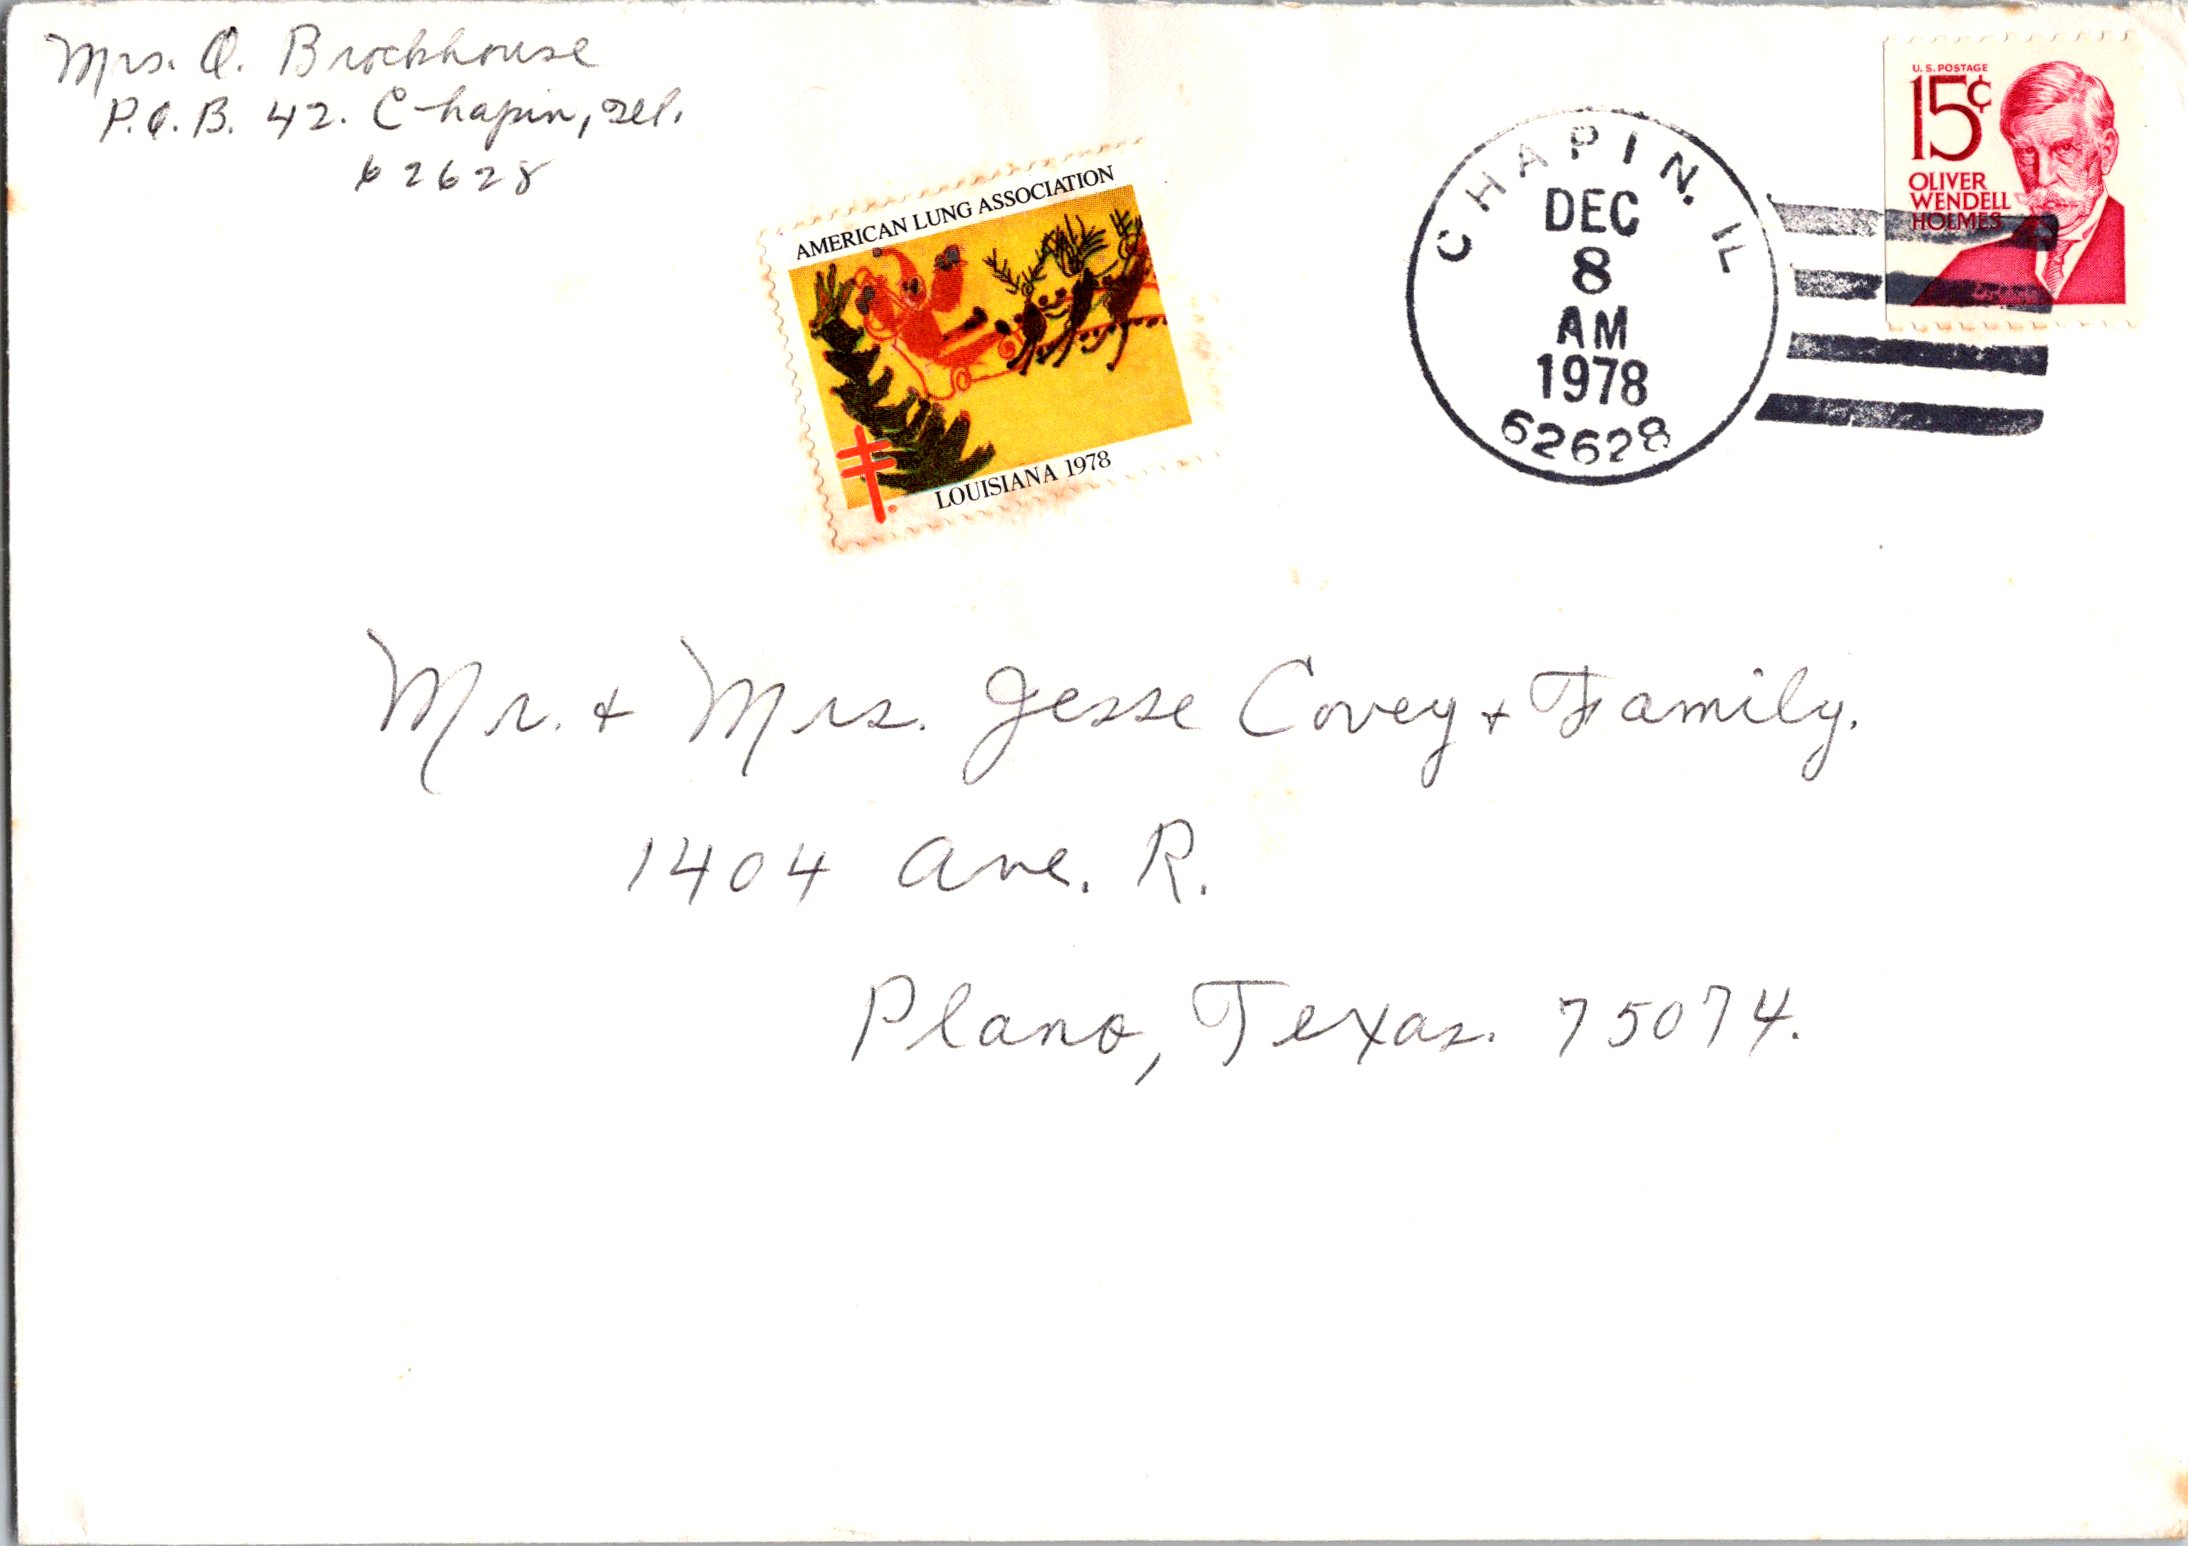 Mrs. O. Brockhouse
P.O.B. 42. Chapin, Ill.
62628
AMERICAN LUNG ASSOCIATION
LOUISIANA 1978
CHAPIN, IL
DEC
8
AM
1978
62628
U.S. POSTAGE
15¢
OLIVER
WENDELL
HOLMES
Mr. & Mrs. Jesse Covey & Family.
1404 Ave. R.
Plano, Texas. 75074.